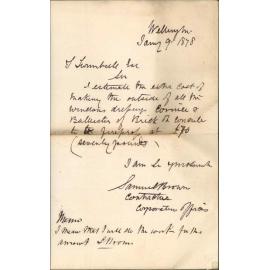 Wellington
Jany 9th 1878
T Turnbull, Esq
Sir
I estimate the extra cost of
making the outside of all the
windows dressings Cornice &
Ballusters of Brick & Concrete
to be fireproof at £70
(seventy pounds)
I am Sir yours
Samuel Brown
Contractor
Corporation Offices
Memo
I mean that I will do the work for this
amount S Brown